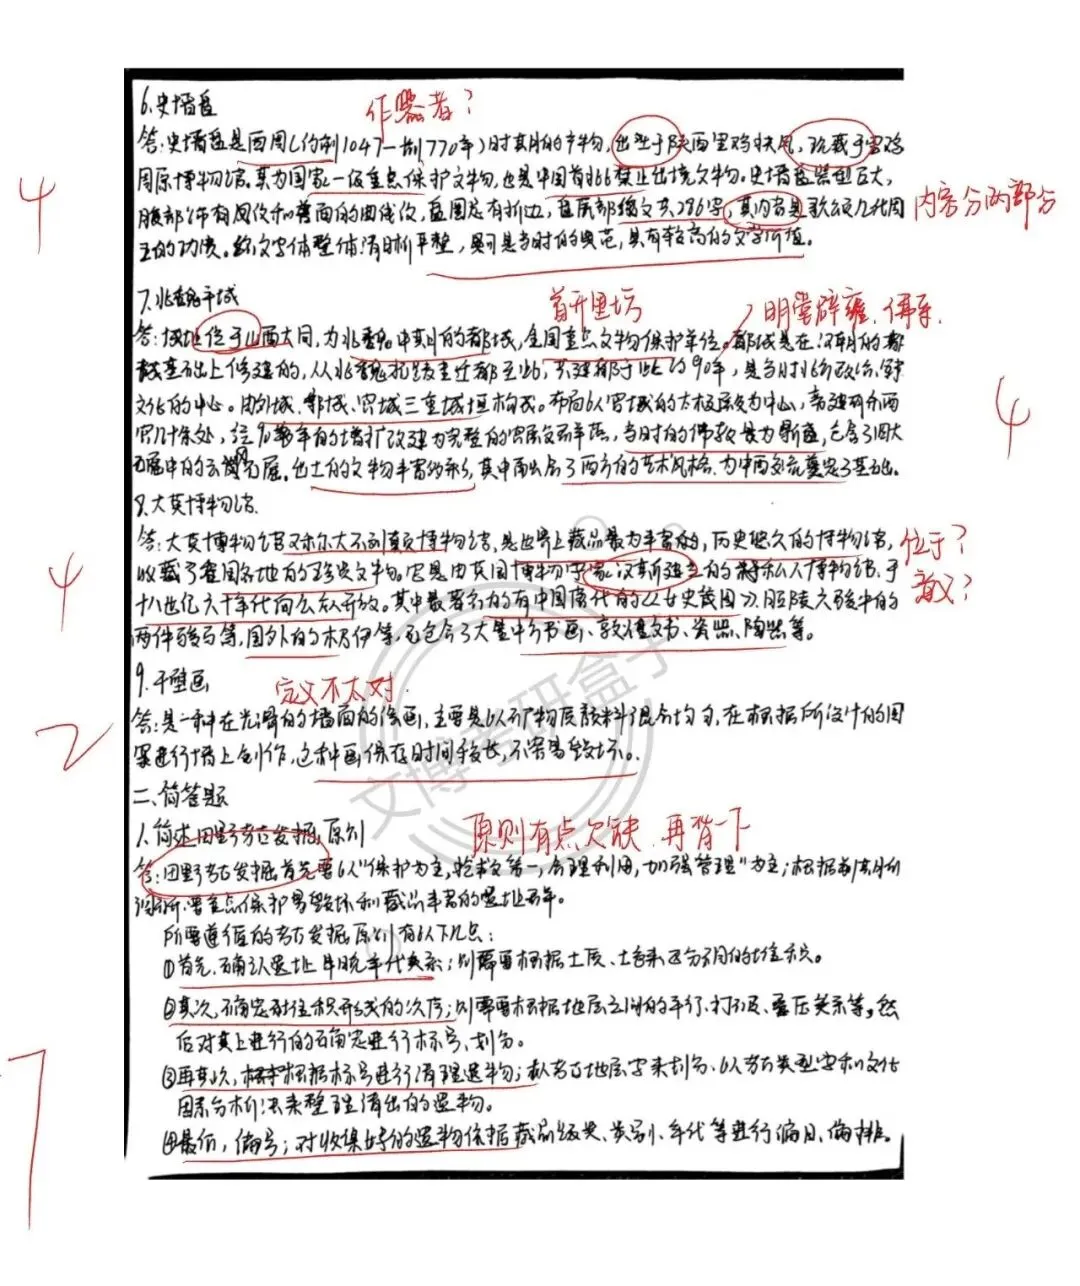 作器者？
6.史墙盘
答：史墙盘是西周（约前1047—前770年）时期的产物，出土于陕西宝鸡扶风，现藏于宝鸡
周原博物馆。其为国家一级重点保护文物，也是中国首批禁止出境文物。史墙盘器型巨大，
腹部饰有凤纹和兽面的曲线纹，盘圈足有折边，盘底部铭文共286字，其内容是歌颂几代周
王的功绩。铭文字体整体清晰平整，是当时的典范，具有较高的文学价值。
4
内容分两部分
首开里坊
明堂辟雍、佛寺
7.北魏平城
答：城址位于山西大同，为北魏中期的都城，全国重点文物保护单位。都城是在汉朝的
基础上修建的，从北魏拓跋圭迁都至此，共建都于此约90年，是当时北方政治、经
文化的中心。由外城、郭城、宫城三重城垣构成。布局以宫城的太极殿为中心，
当时的佛教最为鼎盛，包含了四大
石窟中的云冈石窟。出土的文物丰富多彩，其中融合了西方的艺术风格，为中西交流奠定了基础。
4
8.大英博物馆
答：大英博物馆又称大不列颠博物馆，是世界上藏品最为丰富的，历史悠久的博物馆，
收藏了各国各地的珍贵文物。它是由英国博物学家汉斯建立的私人博物馆，于
十八世纪六十年代向公众开放。其中最著名的有中国唐代的《女史箴图》、昭陵六骏中的
两件骏马等，国外的木乃伊等，包含了大量中外书画、敦煌文书、瓷器、陶器等。
4
位于？
意义？
9.干壁画
定义不太对.
答：是一种在光滑的墙面的绘画，主要是以矿物质颜料混合均匀，在根据所设计的图
案进行墙上创作，这种画保存时间较长，不容易毁坏。
2
二、简答题
1.简述田野考古发掘原则
原则有点欠缺，再背一下
答：田野考古发掘首先要以“保护为主，抢救第一，合理利用，加强管理”为主；根据前期所
重点保护易毁坏和藏品丰富的遗址
所要遵循的考古发掘原则有以下几点：
①首先，确认遗址早晚年代关系；则需要根据土质、土色来区分不同的堆积。
②其次，确定堆积形成的次序；则需要根据地层之间的平行、打破、叠压关系等，然
后对其上进行的确定进行标号、划分。
③再次，根据标号进行清理遗物；从考古地层学来划分、以考古类型学和文化
因素分析法来整理清出的遗物。
④最后，编号；对收集好的遗物依据藏品级类、类别、年代等进行编目、编排。
7
文博考研盒子